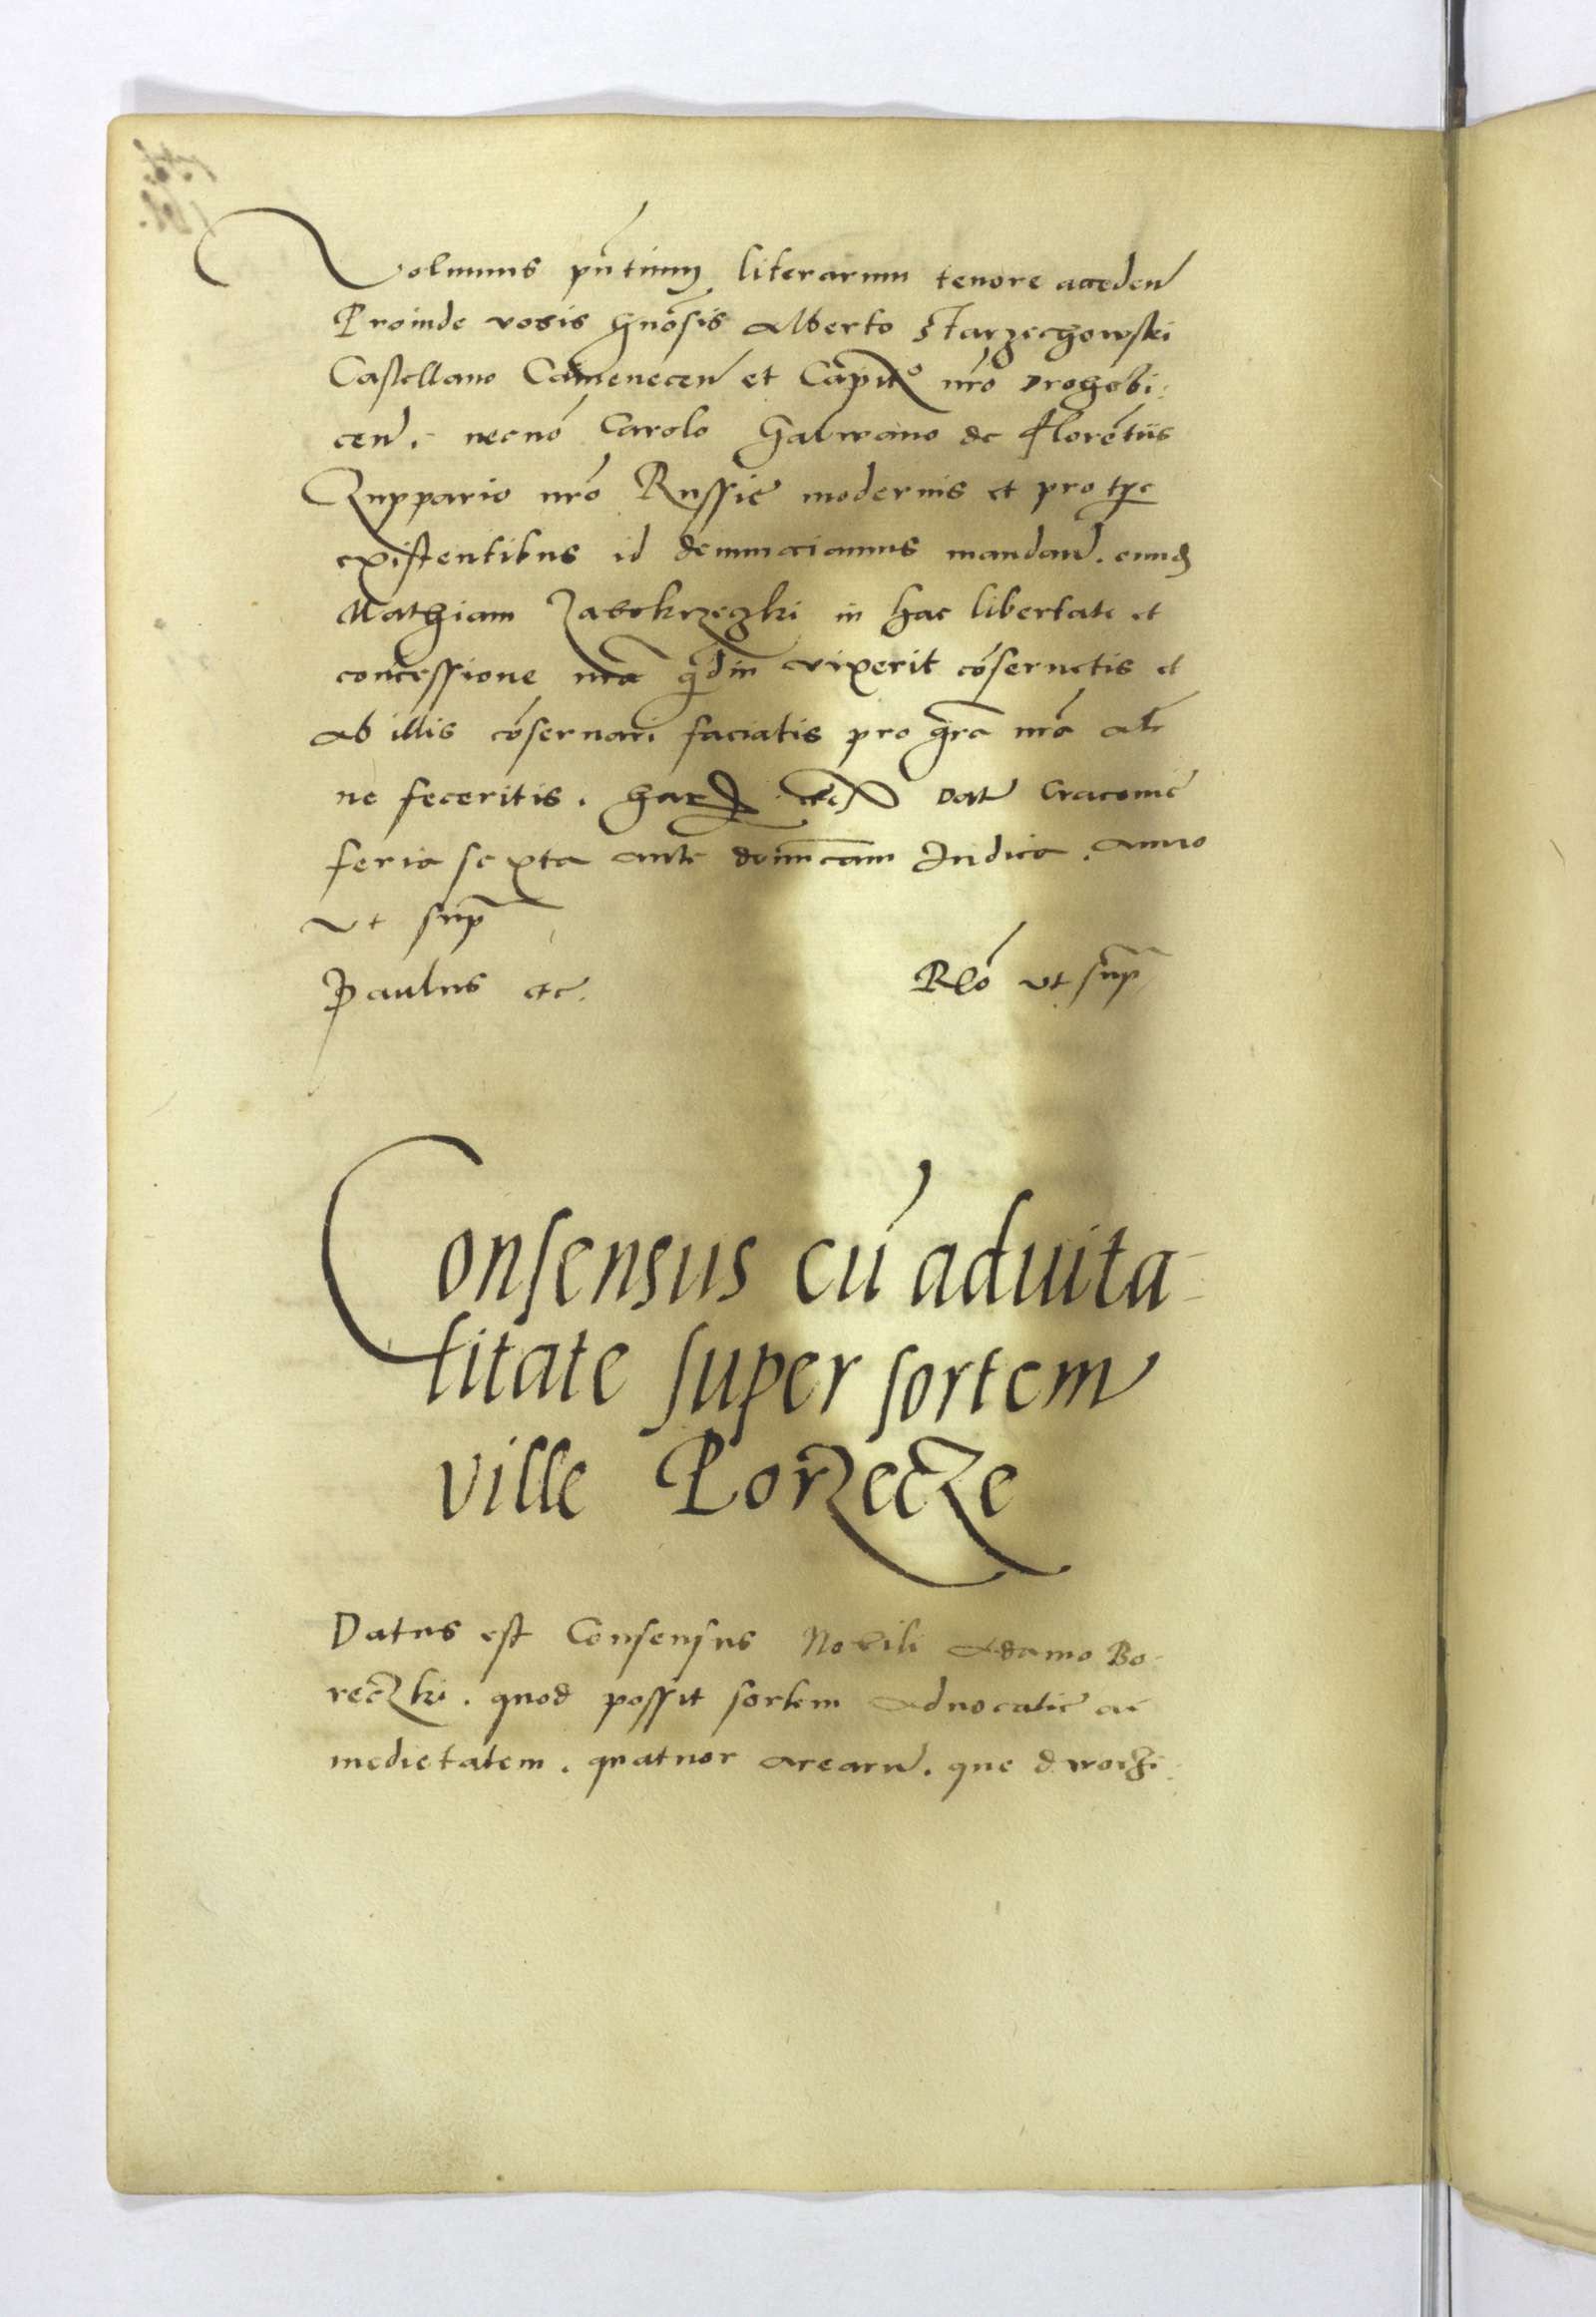 Volumus pn̄tium literarum tenore acceden̄
Proinde vobis gnōsis Alberto Starzechowski
Castellano Camenecen̄ et Capit° nr̄o Drohobi:
cen̄. necnō Carolo Galwano de Florētiis
Zuppario nr̄o Russie modernis et pro tpe
existentibus id demandamus mandan̄. eund
Mathiam Zabokrzeczki in hac libertate et
concessione nr̄a qdiu vixerit cōseruetis et
ab illis cōseruari faciatis pro gr̄a nr̄a alr̄
ne feceritis. Dat Cracouie
feria sexta ante dominicam Iudica. Anno
vt sup̄
Paulus etc. Rlō vt sup̄
Consensus cū aduita-
litate super sortem
ville Porzecze
Datus est Consensus Nobili Adamo Bo-
reczki. quod possit sortem aduocatie ac
medietatem. quatuor arearū. que dworzi: